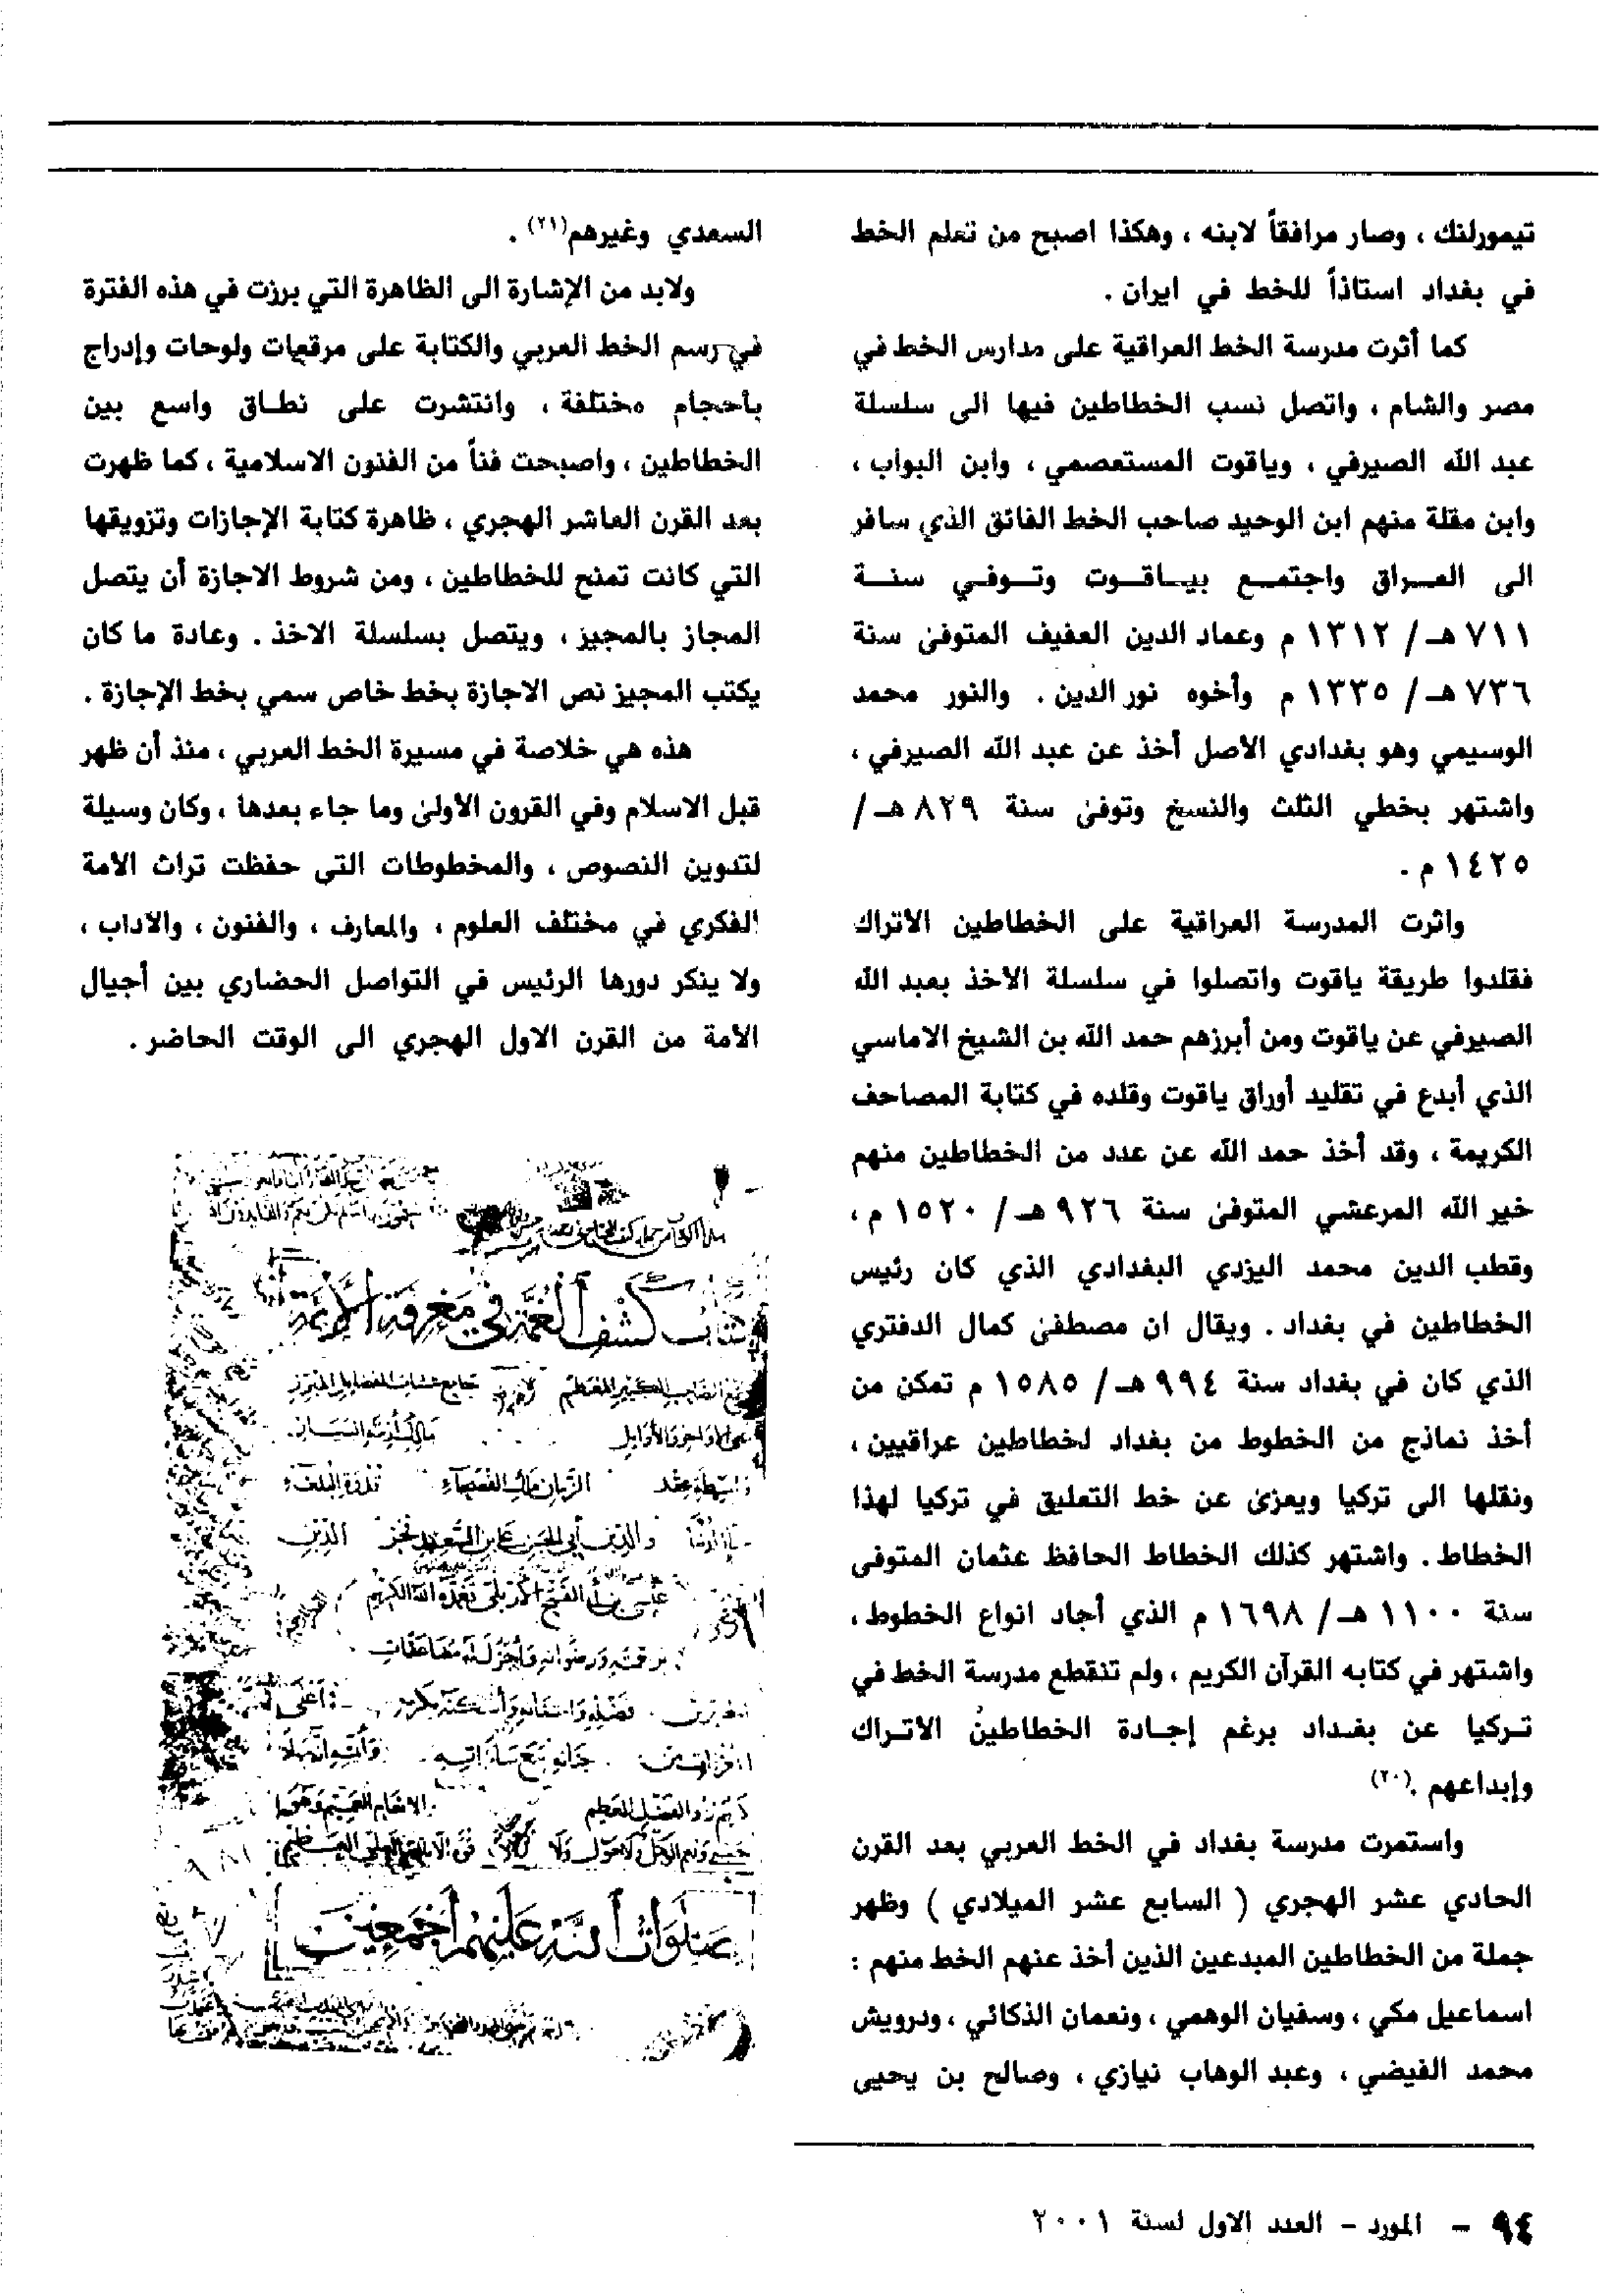 تيمورلنك ، وصار مرافقاً لابنه ، وهكذا اصبح من تعلم الخط
في بغداد استاذاً للخط في ايران .
كما أثرت مدرسة الخط العراقية على مدارس الخط في
مصر والشام ، واتصل نسب الخطاطين فيها الى سلسلة
عبد الله الصيرفي ، وياقوت المستعصمي ، وابن البواب ،
وابن مقلة منهم ابن الوحيد صاحب الخط الفائق الذي سافر
الى العـــراق واجتمـــع بيـــاقـــوت وتـــوفـــي سنـــة
٧١١ هـ / ١٣١٢ م وعماد الدين العفيف المتوفىٰ سنة
٧٣٦ هـ / ١٣٣٥ م وأخوه نور الدين . والنور محمد
الوسيمي وهو بغدادي الاصل أخذ عن عبد الله الصيرفي ،
واشتهر بخطي الثلث والنسخ وتوفىٰ سنة ٨٢٩ هـ /
١٤٢٥ م .
واثرت المدرسة العراقية على الخطاطين الاتراك
فقلدوا طريقة ياقوت واتصلوا في سلسلة الاخذ بعبد الله
الصيرفي عن ياقوت ومن أبرزهم حمد الله بن الشيخ الاماسي
الذي أبدع في تقليد أوراق ياقوت وقلده في كتابة المصاحف
الكريمة ، وقد أخذ حمد الله عن عدد من الخطاطين منهم
خير الله المرعشي المتوفىٰ سنة ٩٢٦ هـ / ١٥٢٠ م ،
وقطب الدين محمد اليزدي البغدادي الذي كان رئيس
الخطاطين في بغداد . ويقال ان مصطفىٰ كمال الدفتري
الذي كان في بغداد سنة ٩٩٤ هـ / ١٥٨٥ م تمكن من
أخذ نماذج من الخطوط من بغداد لخطاطين عراقيين ،
ونقلها الى تركيا ويعزىٰ عن خط التعليق في تركيا لهذا
الخطاط . واشتهر كذلك الخطاط الحافظ عثمان المتوفى
سنة ١١٠٠ هـ / ١٦٩٨ م الذي أجاد انواع الخطوط ،
واشتهر في كتابه القرآن الكريم ، ولم تنقطع مدرسة الخط في
تـركيا عن بغـداد برغم إجـادة الخطاطين الاتـراك
وإبداعهم .(٢٠)
واستمرت مدرسة بغداد في الخط العربي بعد القرن
الحادي عشر الهجري ( السابع عشر الميلادي ) وظهر
جملة من الخطاطين المبدعين الذين أخذ عنهم الخط منهم :
اسماعيل مكي ، وسفيان الوهمي ، ونعمان الذكائي ، ودرويش
محمد الفيضي ، وعبد الوهاب نيازي ، وصالح بن يحيى
السعدي وغيرهم(٢١) .
ولابد من الإشارة الى الظاهرة التي برزت في هذه الفترة
في رسم الخط العربي والكتابة على مرقعات ولوحات وإدراج
بأحجام مختلفة ، وانتشرت على نطـاق واسع بين
الخطاطين ، واصبحت فناً من الفنون الاسلامية ، كما ظهرت
بعد القرن العاشر الهجري ، ظاهرة كتابة الإجازات وتزويقها
التي كانت تمنح للخطاطين ، ومن شروط الاجازة أن يتصل
المجاز بالمجيز ، ويتصل بسلسلة الاخذ . وعادة ما كان
يكتب المجيز نص الاجازة بخط خاص سمي بخط الإجازة .
هذه هي خلاصة في مسيرة الخط العربي ، منذ أن ظهر
قبل الاسلام وفي القرون الأولىٰ وما جاء بعدها ، وكان وسيلة
لتدوين النصوص ، والمخطوطات التي حفظت تراث الأمة
الفكري في مختلف العلوم ، والمعارف ، والفنون ، والآداب ،
ولا ينكر دورها الرئيس في التواصل الحضاري بين أجيال
الأمة من القرن الاول الهجري الى الوقت الحاضر .
كتاب كشف الغمة في معرفة الأئمة
صلوات الله عليهم أجمعين
٩٤ - المورد - العدد الاول لسنة ٢٠٠١